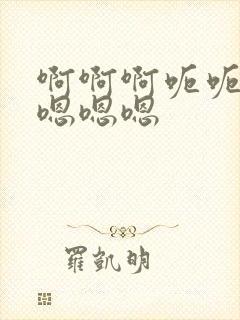 啊啊啊呃呃
嗯嗯嗯
羅凱明